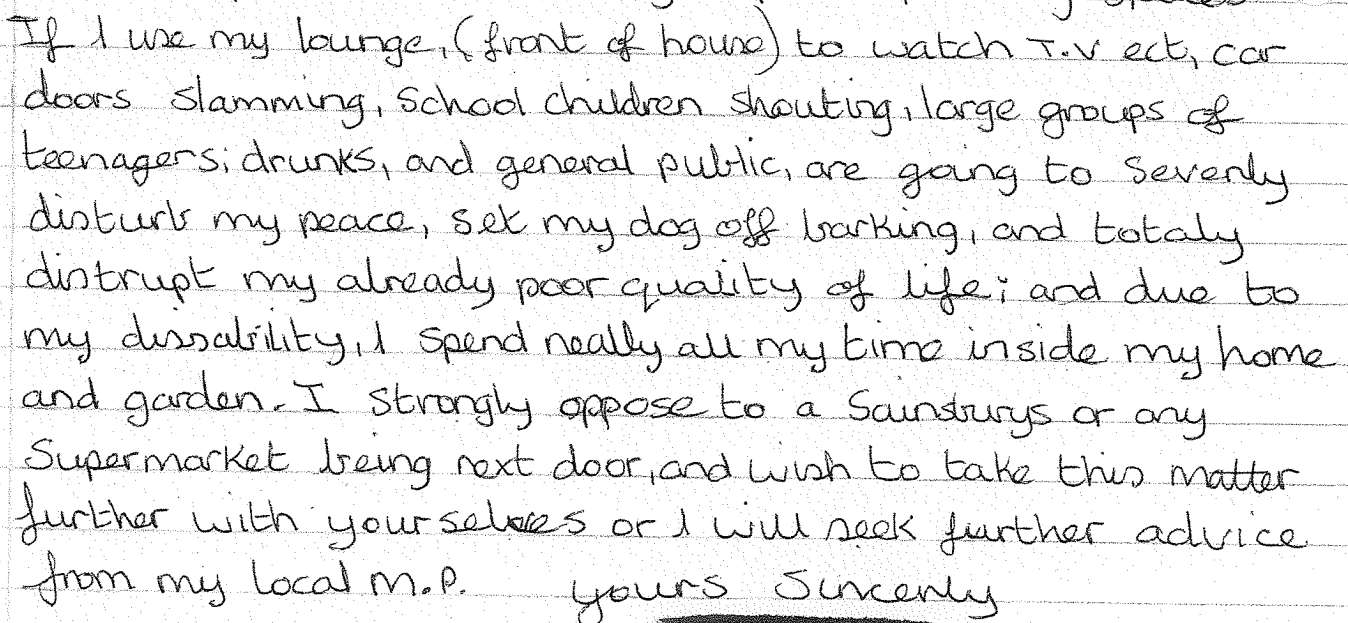 If I use my lounge, (front of house) to watch T.V ect, car
doors slamming, school children shouting, large groups of
teenagers; drunks, and general public, are going to severly
disturb my peace, set my dog off barking, and totaly
distrupt my already poor quality of life; and due to
my dissability, I spend neally all my time inside my home
and garden. I strongly oppose to a Sainsburys or any
Supermarket being next door, and wish to take this matter
further with yourselves or I will seek further advice
from my local M.P. yours Sincerly